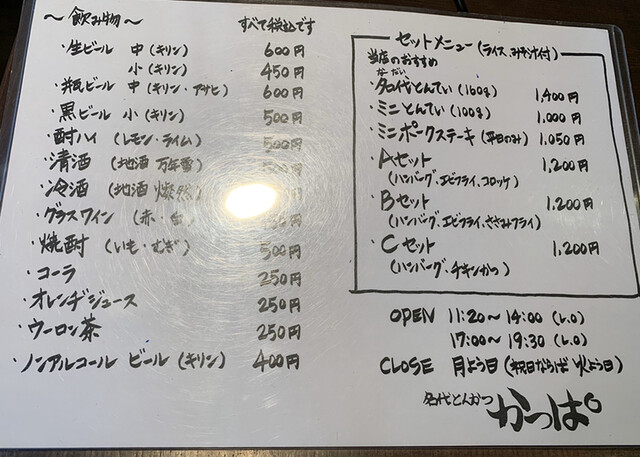 ～ 飲み物 ～ すべて税込です
・生ビール 中 (キリン) 600円
小 (キリン) 450円
・瓶ビール 中 (キリン・アサヒ) 600円
・黒ビール 小 (キリン) 500円
・酎ハイ (レモン・ライム) 500円
・清酒 (地酒 万年雪)
・冷酒 (地酒 燦然)
・グラスワイン (赤・白)
・焼酎 (いも・むぎ) 500円
・コーラ 250円
・オレンヂジュース 250円
・ウーロン茶 250円
・ノンアルコール ビール (キリン) 400円
セットメニュー (ライス、みそ汁付)
当店のおすすめ
なだい
・名代とんてい (160g) 1,400円
・ミニとんてい (100g) 1,000円
・ミニポークステーキ (平日のみ) 1,050円
・Aセット 1,200円
(ハンバーグ、エビフライ、コロッケ)
・Bセット 1,200円
(ハンバーグ、エビフライ、ささみフライ)
・Cセット 1,200円
(ハンバーグ、チキンかつ)
OPEN 11:20～14:00 (L.O)
17:00～19:30 (L.O)
CLOSE 月よう日 (祝日ならば 火よう日)
名代とんかつ かっぱ